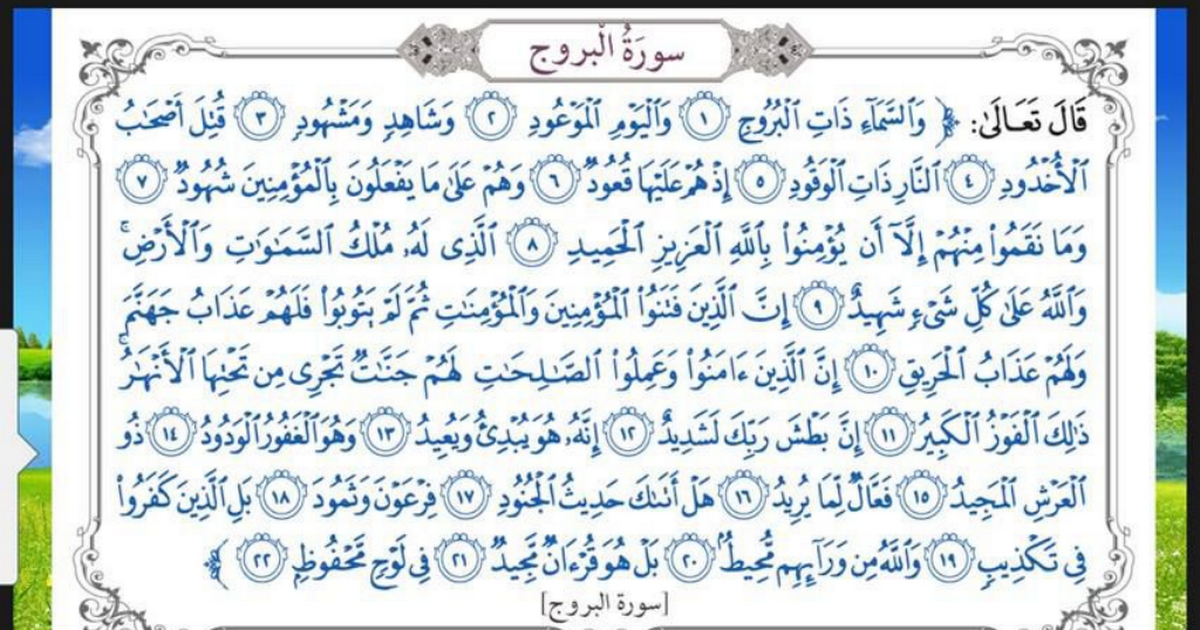 سورَةُ الْبروج
قَالَ تَعَالَىٰ: ﴿ وَٱلسَّمَآءِ ذَاتِ ٱلۡبُرُوجِ ١ وَٱلۡيَوۡمِ ٱلۡمَوۡعُودِ ٢ وَشَاهِدٖ وَمَشۡهُودٖ ٣ قُتِلَ أَصۡحَٰبُ
ٱلۡأُخۡدُودِ ٤ ٱلنَّارِ ذَاتِ ٱلۡوَقُودِ ٥ إِذۡ هُمۡ عَلَيۡهَا قُعُودٞ ٦ وَهُمۡ عَلَىٰ مَا يَفۡعَلُونَ بِٱلۡمُؤۡمِنِينَ شُهُودٞ ٧
وَمَا نَقَمُواْ مِنۡهُمۡ إِلَّآ أَن يُؤۡمِنُواْ بِٱللَّهِ ٱلۡعَزِيزِ ٱلۡحَمِيدِ ٨ ٱلَّذِي لَهُۥ مُلۡكُ ٱلسَّمَٰوَٰتِ وَٱلۡأَرۡضِۚ
وَٱللَّهُ عَلَىٰ كُلِّ شَيۡءٖ شَهِيدٌ ٩ إِنَّ ٱلَّذِينَ فَتَنُواْ ٱلۡمُؤۡمِنِينَ وَٱلۡمُؤۡمِنَٰتِ ثُمَّ لَمۡ يَتُوبُواْ فَلَهُمۡ عَذَابُ جَهَنَّمَ
وَلَهُمۡ عَذَابُ ٱلۡحَرِيقِ ١٠ إِنَّ ٱلَّذِينَ ءَامَنُواْ وَعَمِلُواْ ٱلصَّٰلِحَٰتِ لَهُمۡ جَنَّٰتٞ تَجۡرِي مِن تَحۡتِهَا ٱلۡأَنۡهَٰرُۚ
ذَٰلِكَ ٱلۡفَوۡزُ ٱلۡكَبِيرُ ١١ إِنَّ بَطۡشَ رَبِّكَ لَشَدِيدٌ ١٢ إِنَّهُۥ هُوَ يُبۡدِئُ وَيُعِيدُ ١٣ وَهُوَ ٱلۡغَفُورُ ٱلۡوَدُودُ ١٤ ذُو
ٱلۡعَرۡشِ ٱلۡمَجِيدُ ١٥ فَعَّالٞ لِّمَا يُرِيدُ ١٦ هَلۡ أَتَىٰكَ حَدِيثُ ٱلۡجُنُودِ ١٧ فِرۡعَوۡنَ وَثَمُودَ ١٨ بَلِ ٱلَّذِينَ كَفَرُواْ
فِي تَكۡذِيبٖ ١٩ وَٱللَّهُ مِن وَرَآئِهِم مُّحِيطُۢ ٢٠ بَلۡ هُوَ قُرۡءَانٞ مَّجِيدٞ ٢١ فِي لَوۡحٖ مَّحۡفُوظِۭ ٢٢ ﴾
[سورة البروج]